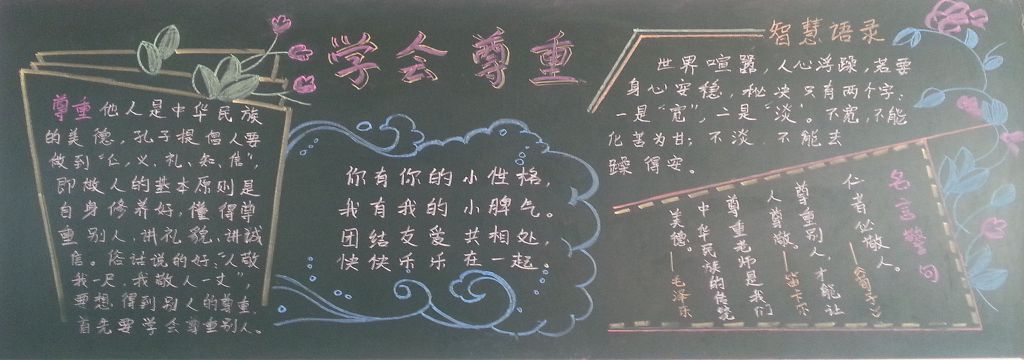 学会尊重
尊重他人是中华民族
的美德，孔子提倡人要
做到“仁，义、礼、知、信”，
即做人的基本原则是
自身修养好，懂得尊
重别人，讲礼貌、讲诚
信。俗话说的好：“人敬
我一尺，我敬人一丈”，
要想得到别人的尊重，
首先要学会尊重别人。
你有你的小性格，
我有我的小脾气。
团结友爱共相处，
快快乐乐在一起。
智慧语录
世界喧嚣，人心浮躁，若要
身心安稳，秘决只有两个字、
一是“宽”，二是“淡”。不宽，不能
化苦为甘；不淡，不能去
躁得安。
名言警句
仁者必敬人。
——《荀子》
尊重别人，才能让
人尊敬。——笛卡尔
尊重老师是我们
中华民族的传统
美德。——毛泽东